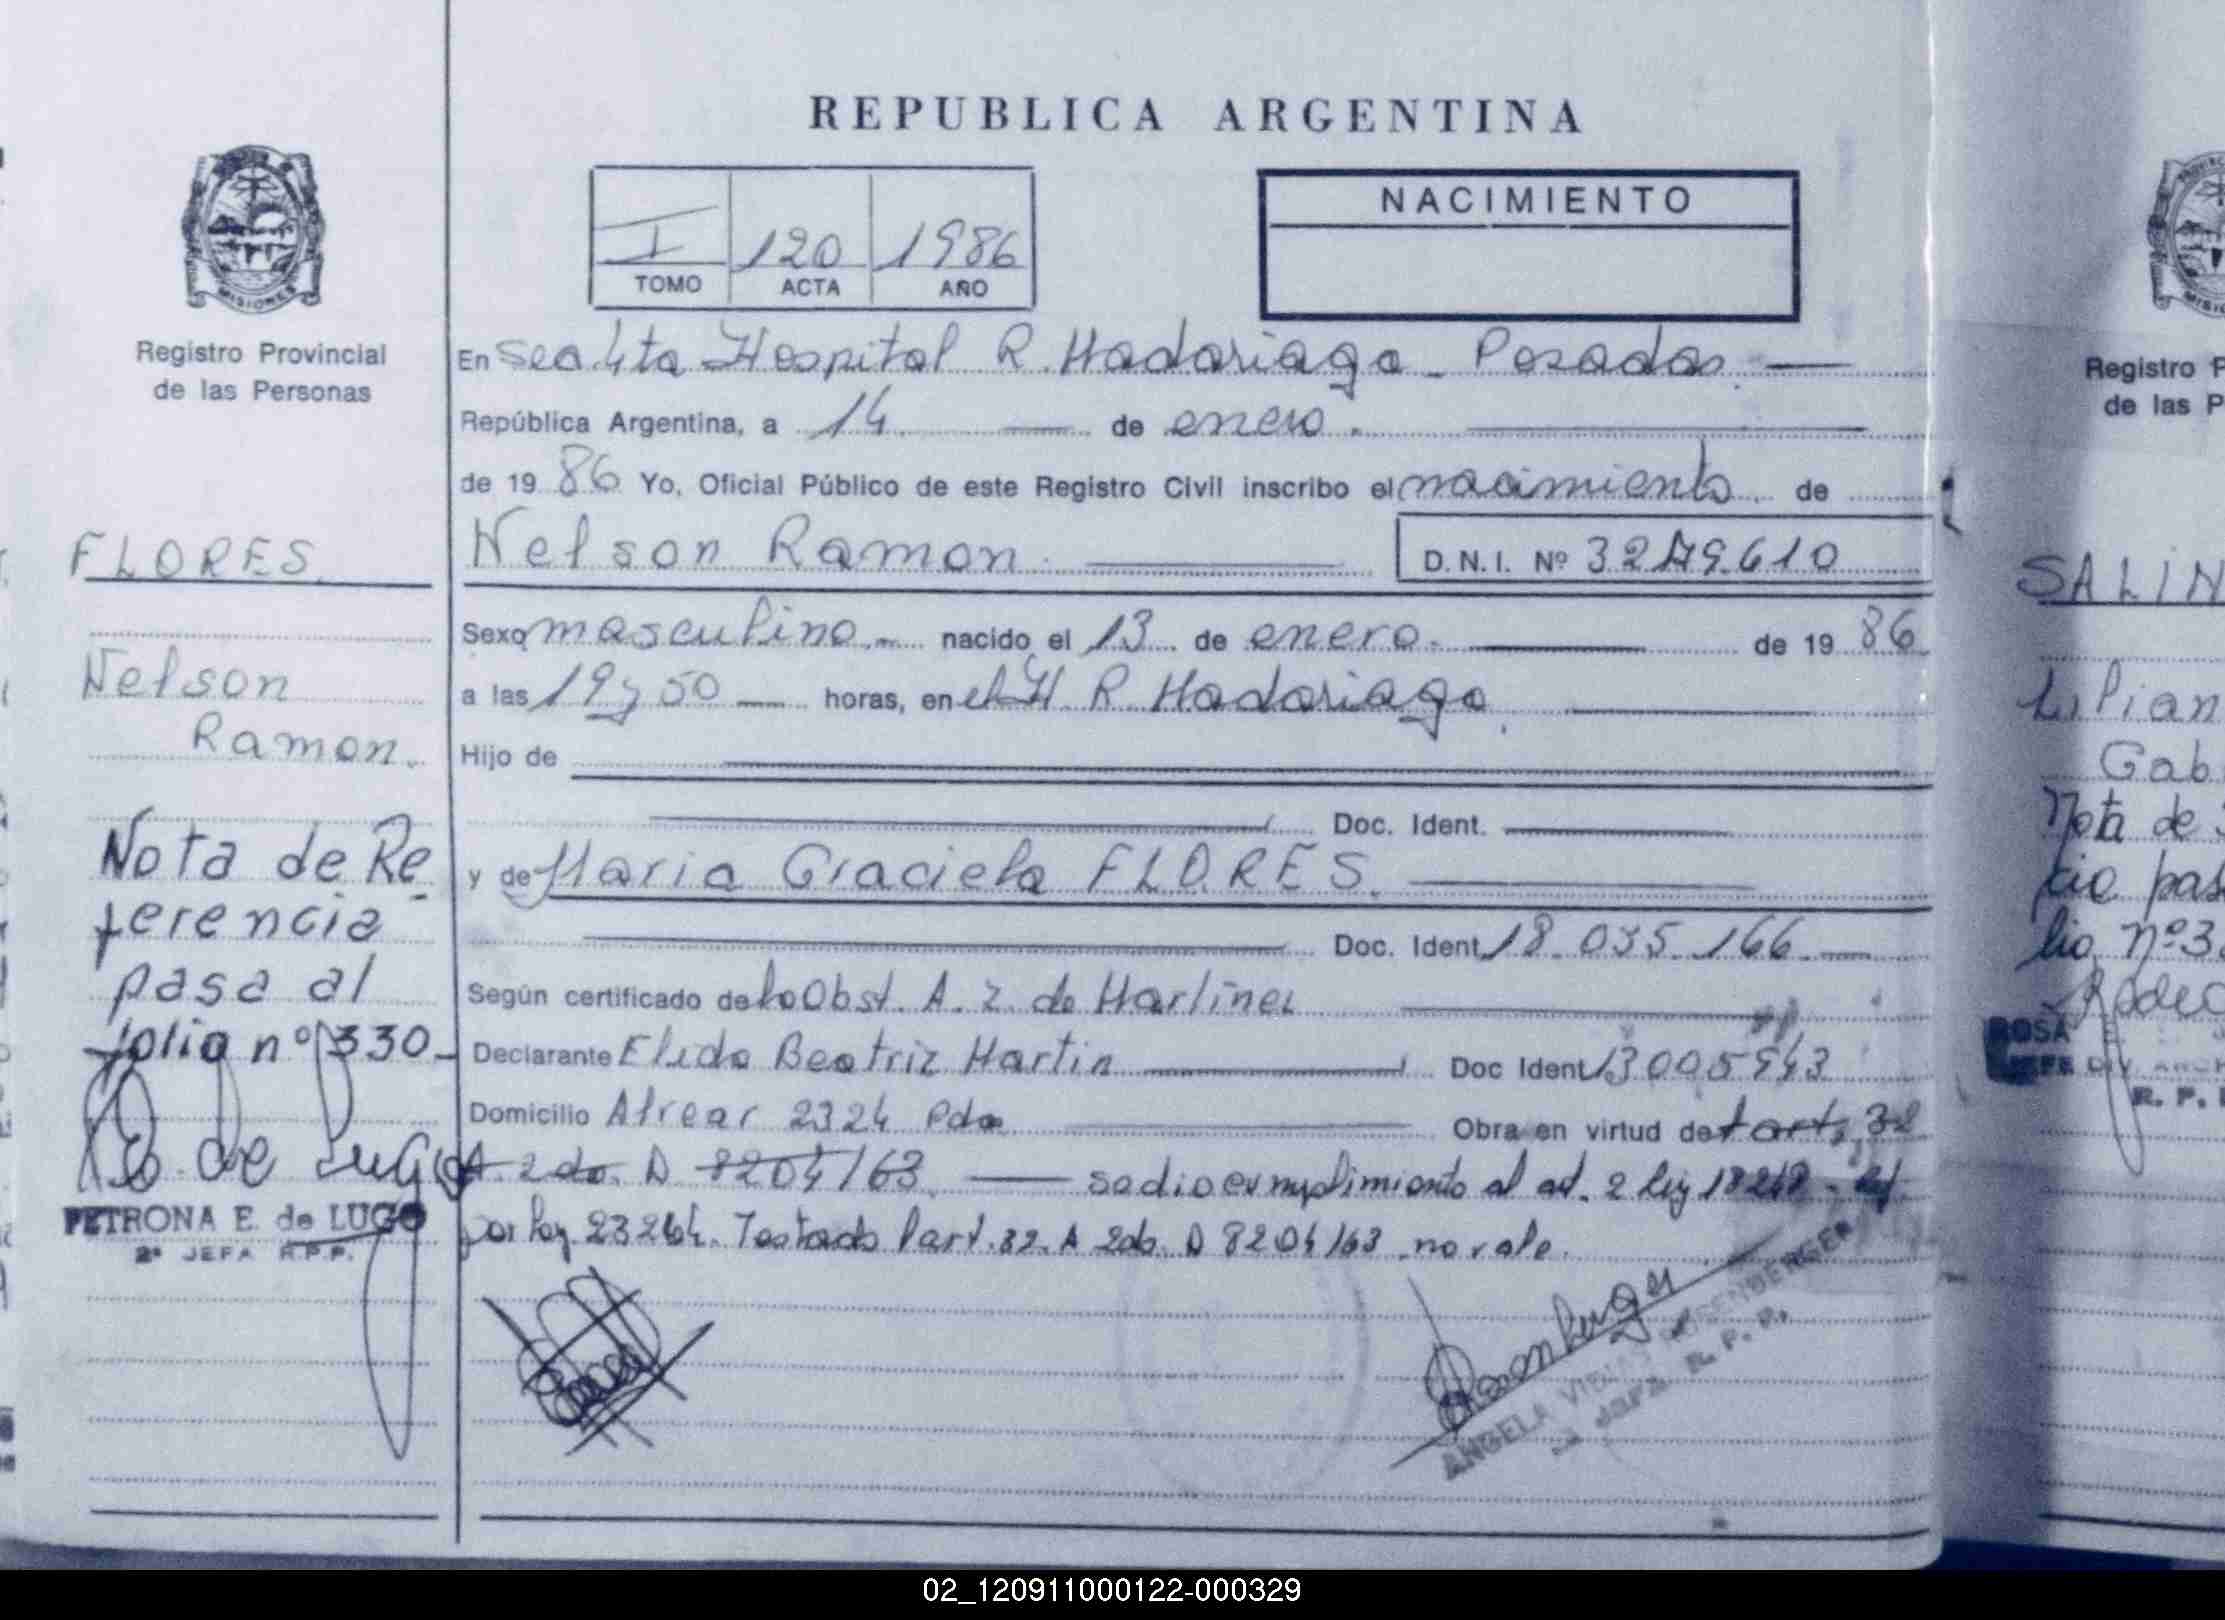 REPUBLICA ARGENTINA
MISIONES
Registro Provincial
de las Personas
I 120 1986
TOMO ACTA AÑO
NACIMIENTO
En Sec 4ta Hospital R. Madariaga - Posadas.
República Argentina, a 14 de enero.
de 1986 Yo, Oficial Público de este Registro Civil inscribo el nacimiento de
Nelson Ramon D.N.I. Nº
FLORES
Nelson
Ramon.
Sexo masculino.- nacido el 13 de enero. de 1986
a las 19 y 50 horas, en el H. R. Madariaga.
Hijo de
Doc. Ident.
y de Maria Graciela FLORES.
Doc. Ident 18.035.166.
Según certificado de la Obst. A. Z. de Martinez
Declarante Elida Beatriz Martin Doc Ident
Domicilio Alvear 2324 Pdas Obra en virtud de l art. 32
A. 2do. D 8204/63. sadio cumplimiento al art. 2 ley 18248
por ley 23264. Testado l'art. 32. A 2do. D 8204/63 no vale.
Nota de Re
ferencia
pasa al
folio nº 330-
P. de Lugo
PETRONA E. de LUGO
2ª JEFA R.P.P.
ANGELA ROSENBERGER
JEFA R. P. P.
Registro P
de las P
SALIN
Lilian
Gab
Nota de
cia pas
lio nº 3
ROSA
JEFE DIV. ARCH
R. P.
02_120911000122-000329